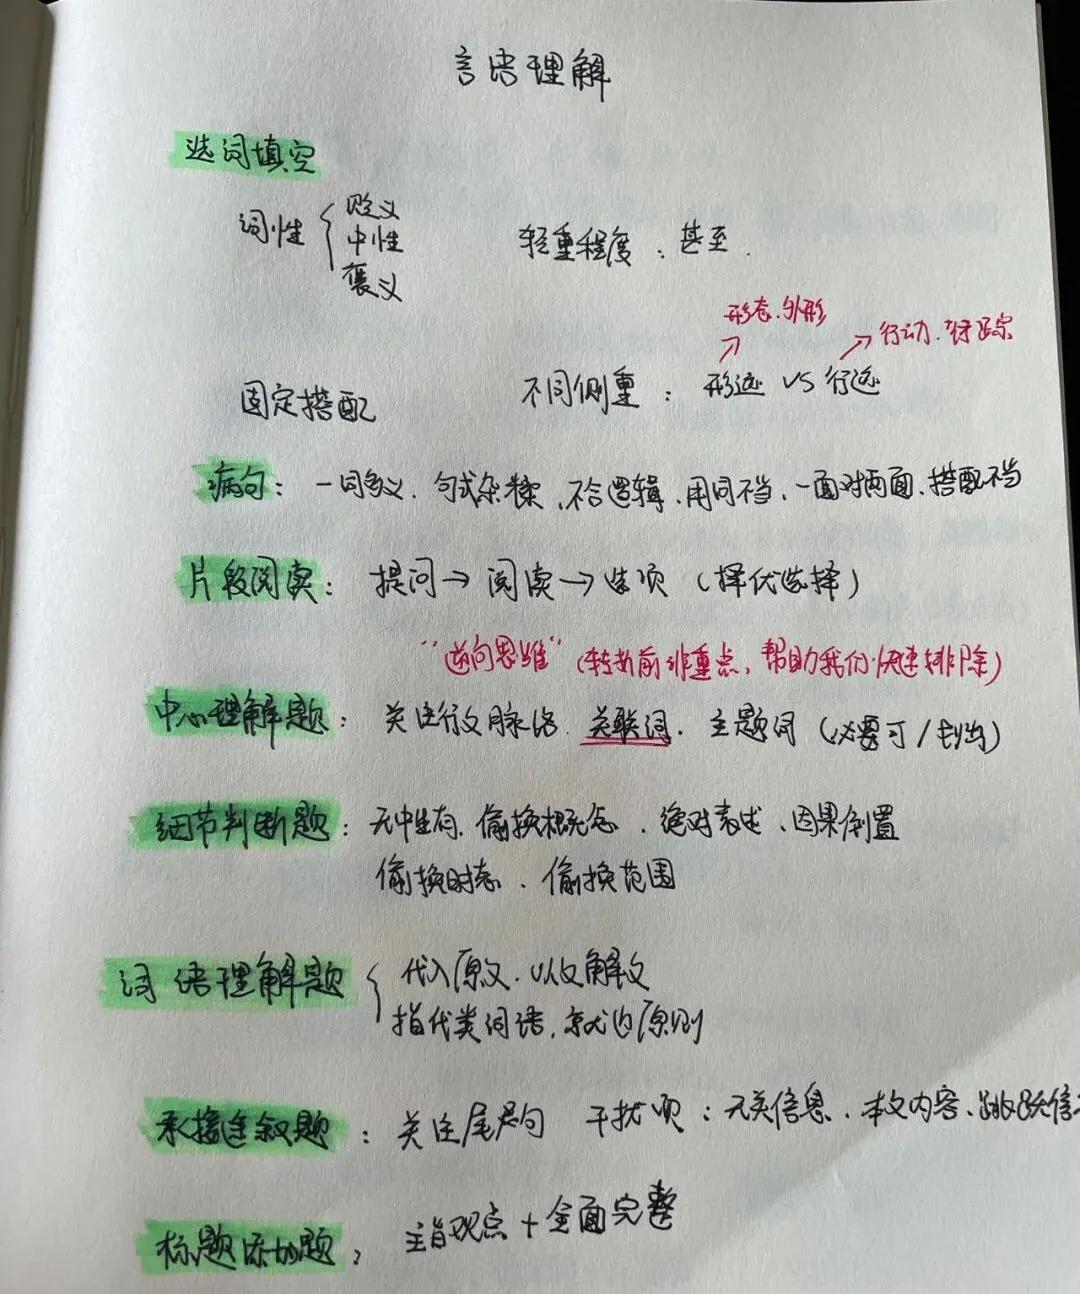 言语理解
选词填空
词性 { 贬义
中性
褒义
轻重程度：甚至.
形态.外形
行动.行踪
固定搭配
不同侧重：形迹 VS 行迹
病句：一词多义.句式杂糅,不合逻辑.用词不当.一面对两面.搭配不当
片段阅读：提问→阅读→选项(择优选择)
“逆向思维”(转折前非重点,帮助我们快速排除)
中心理解题：关注行文脉络.关联词.主题词(必要可/划出)
细节判断题：无中生有.偷换概念.绝对表述.因果倒置
偷换时态.偷换范围
词语理解题 { 代入原文.以文解文
指代类词语,就近原则
承接连叙题：关注尾句 干扰项：无关信息.本文内容.跳跃信
标题添加题：主旨观点+全面完整